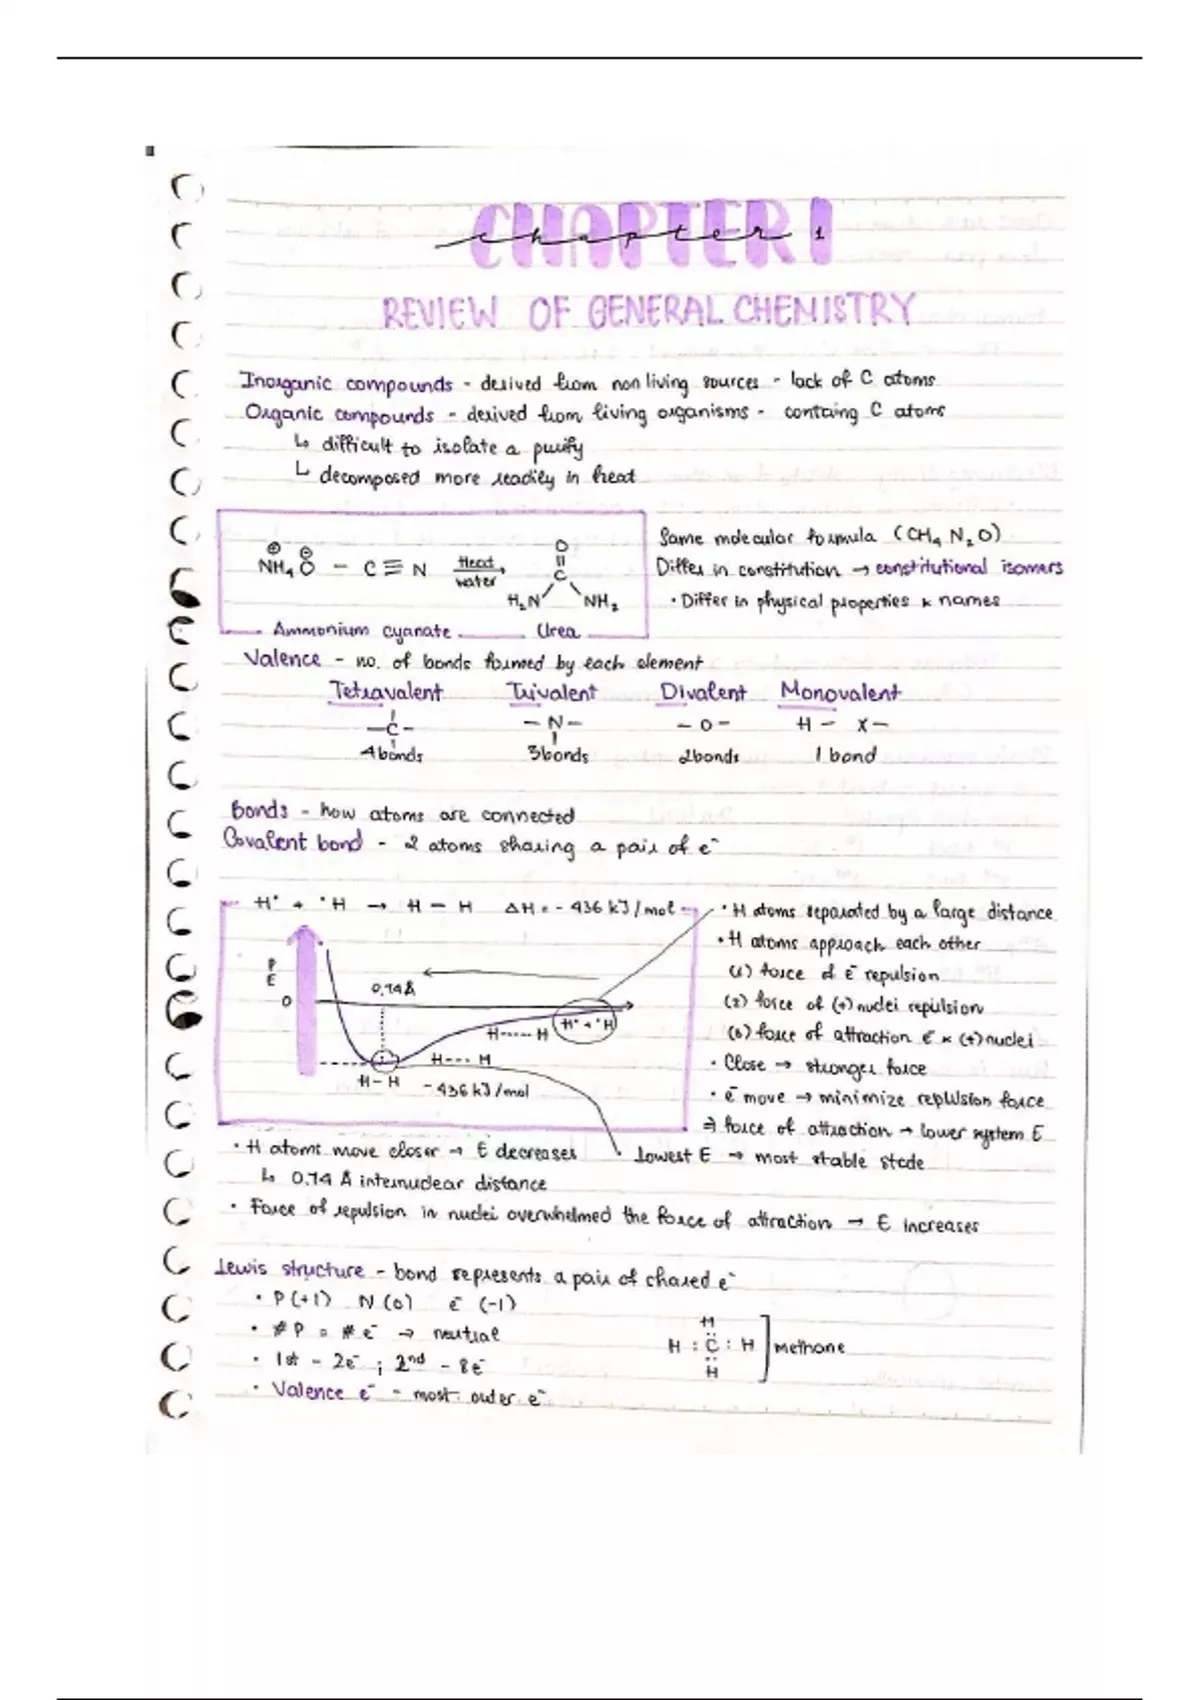 CHAPTER 1
chapter 1
REVIEW OF GENERAL CHEMISTRY
Inorganic compounds - derived from non living sources - lack of C atoms
Organic compounds - derived from living organisms - containg C atoms
↳ difficult to isolate a purify
↳ decomposed more readily in heat
⊕ ⊖
NH₄ O - C ≡ N Heat water → O
C
H₂N NH₂
Ammonium cyanate Urea
Same molecular formula (CH₄ N₂ O)
Differ in constitution → constitutional isomers
• Differ in physical properties & names
Valence - no. of bonds formed by each element
Tetravalent Trivalent Divalent Monovalent
-C- -N- -O- H- X-
4 bonds 3 bonds 2 bonds 1 bond
Bonds - how atoms are connected
Covalent bond - 2 atoms sharing a pair of e⁻
H• + •H → H - H ΔH = - 436 kJ/mol
PE
0
0.74Å
H• + •H
H----- H
H--- H
H-H
-436 kJ/mol
• H atoms separated by a large distance
• H atoms approach each other
(1) force of e⁻ repulsion
(2) force of (+) nuclei repulsion
(3) force of attraction e⁻ & (+) nuclei
• Close → stronger force
• e⁻ move → minimize replusion force
⇒ force of attraction → lower system E
• H atoms move closer → E decreases
• Lowest E → most stable state
↳ 0.74 Å internuclear distance
• Force of repulsion in nuclei overwhelmed the force of attraction → E increases
Lewis structure - bond represents a pair of chared e⁻
• P (+1) N (0) e⁻ (-1)
• #P = #e⁻ → neutral
• 1st - 2e⁻ ; 2nd - 8e⁻
• Valence e⁻ - most outer e⁻
H
H : C : H
H
methane